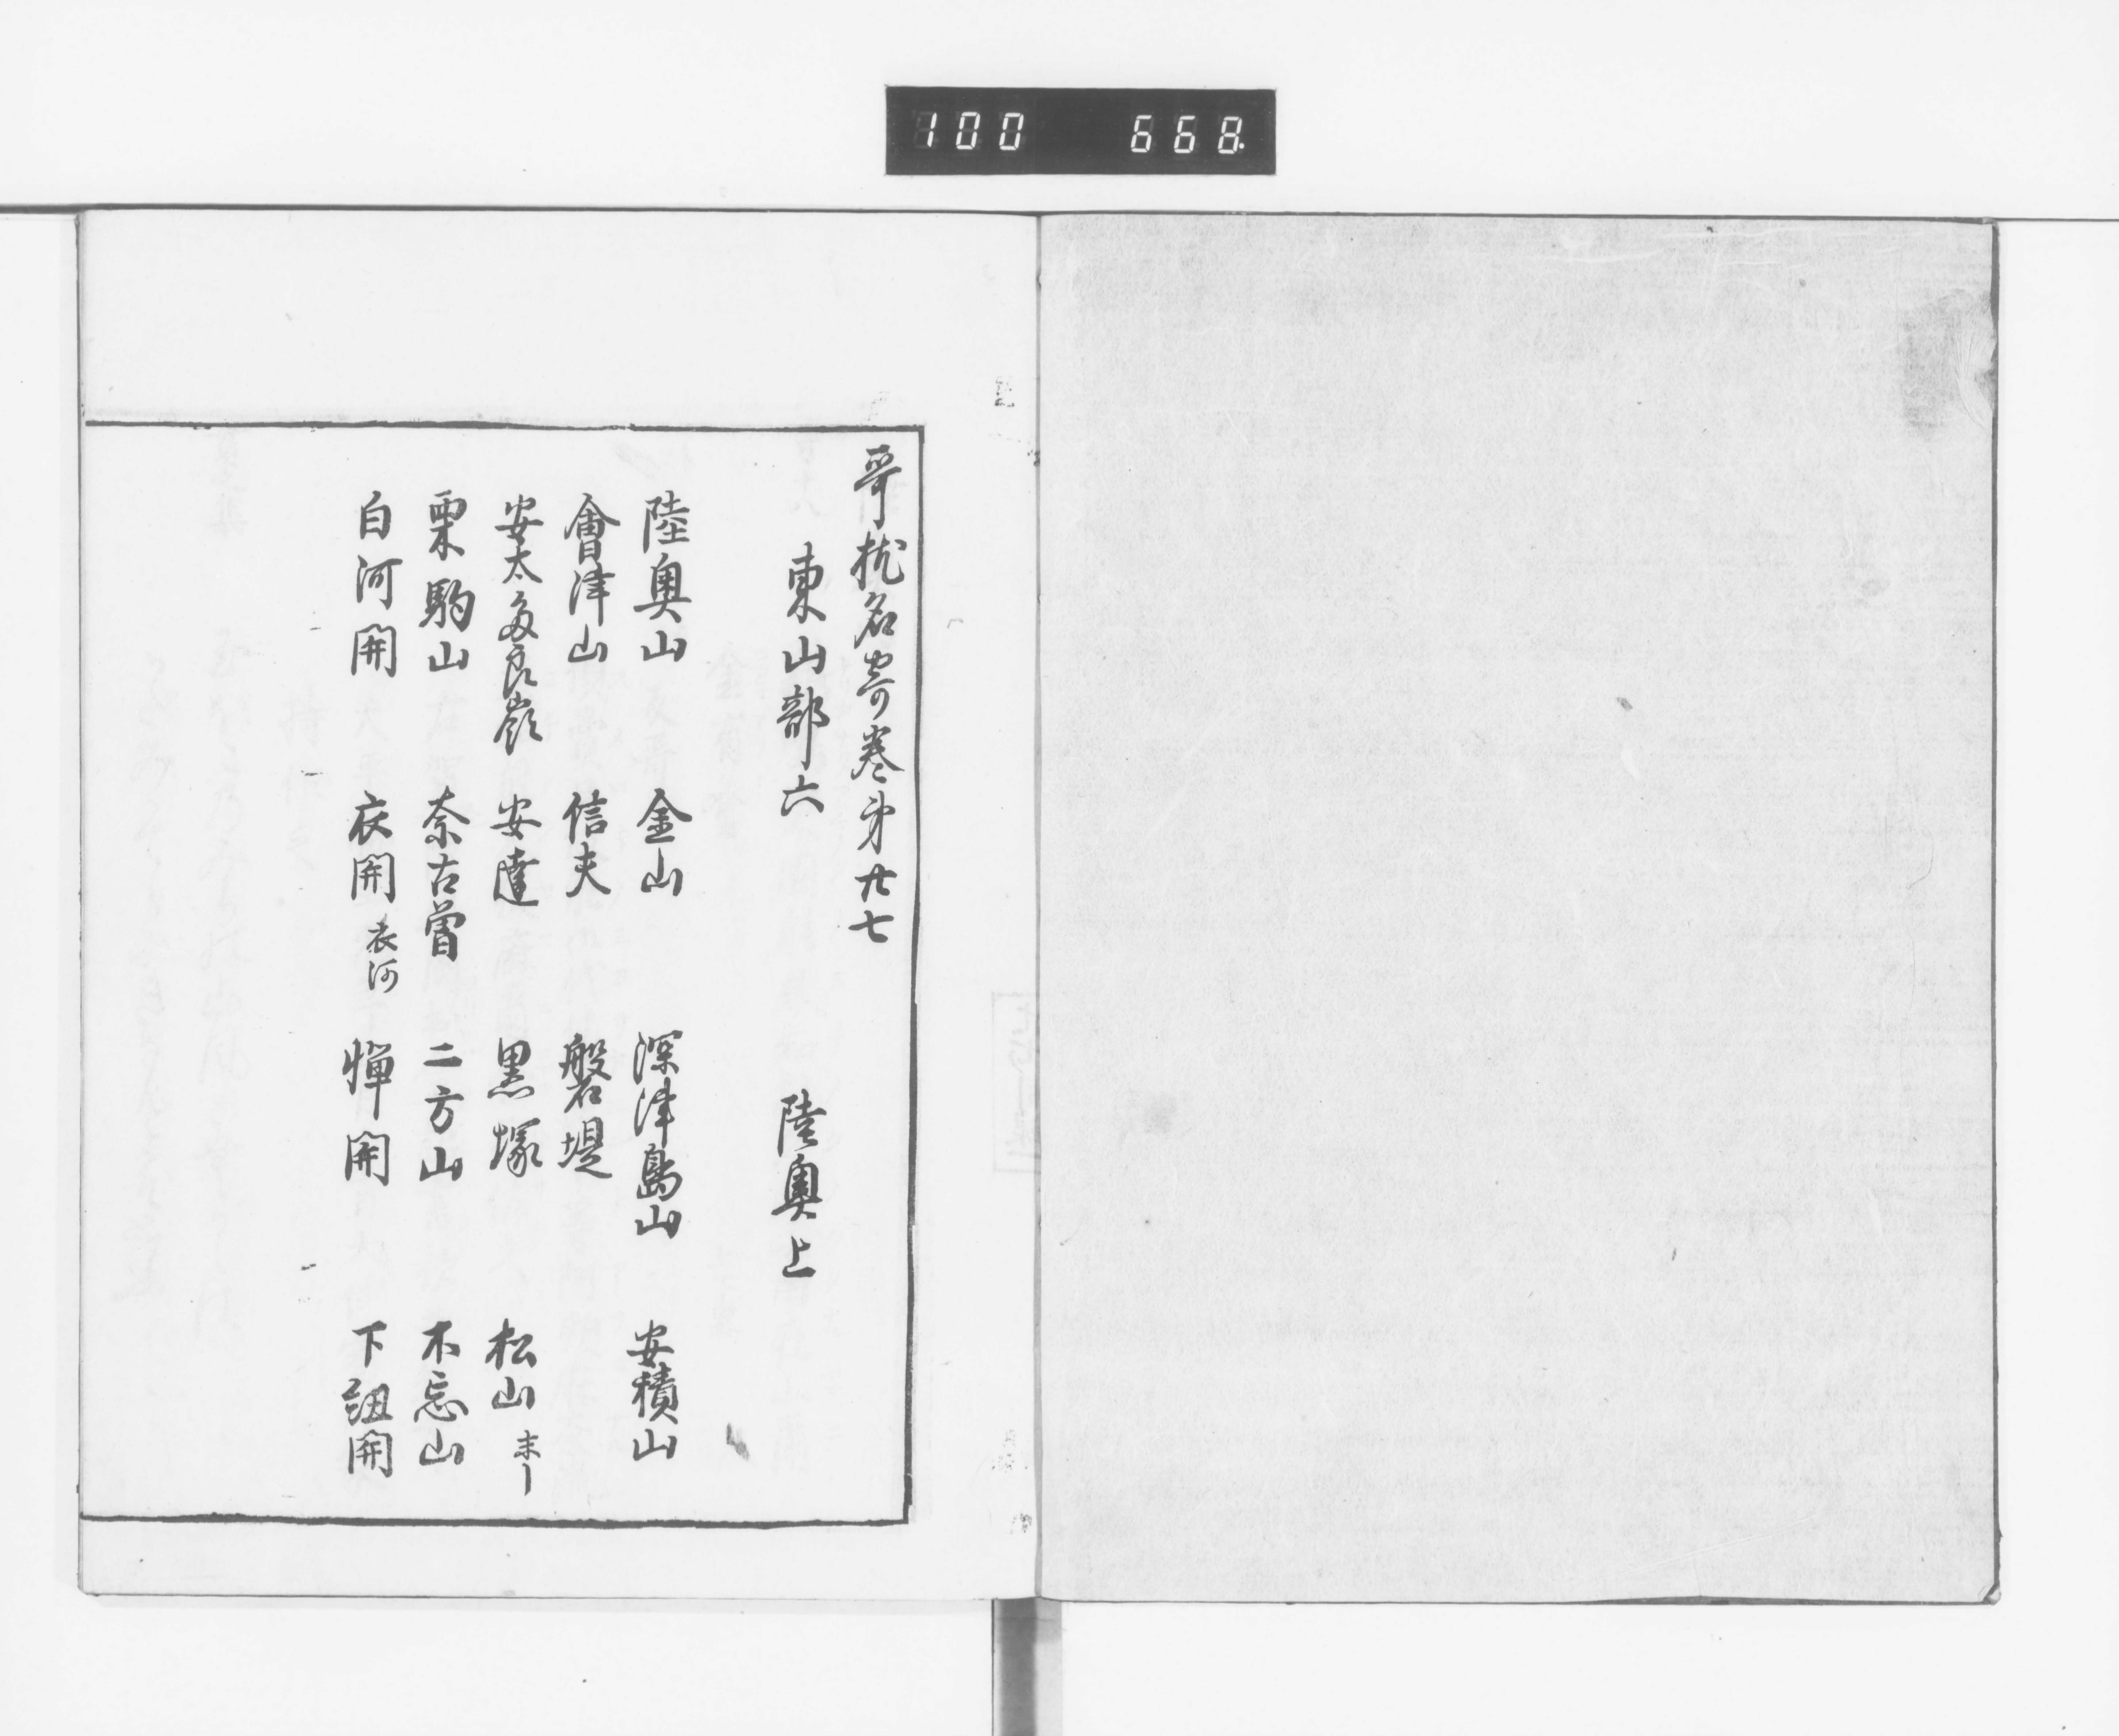 100 668
哥枕名寄巻第廿七
東山部六 陸奥上
陸奥山 金山 深津島山 安積山
會津山 信夫 磐堤
安太多良嶺 安達 黒塚 松山 末ー
栗駒山 奈古曽 二方山 不忘山
白河関 衣関 衣河 憚関 下紐関